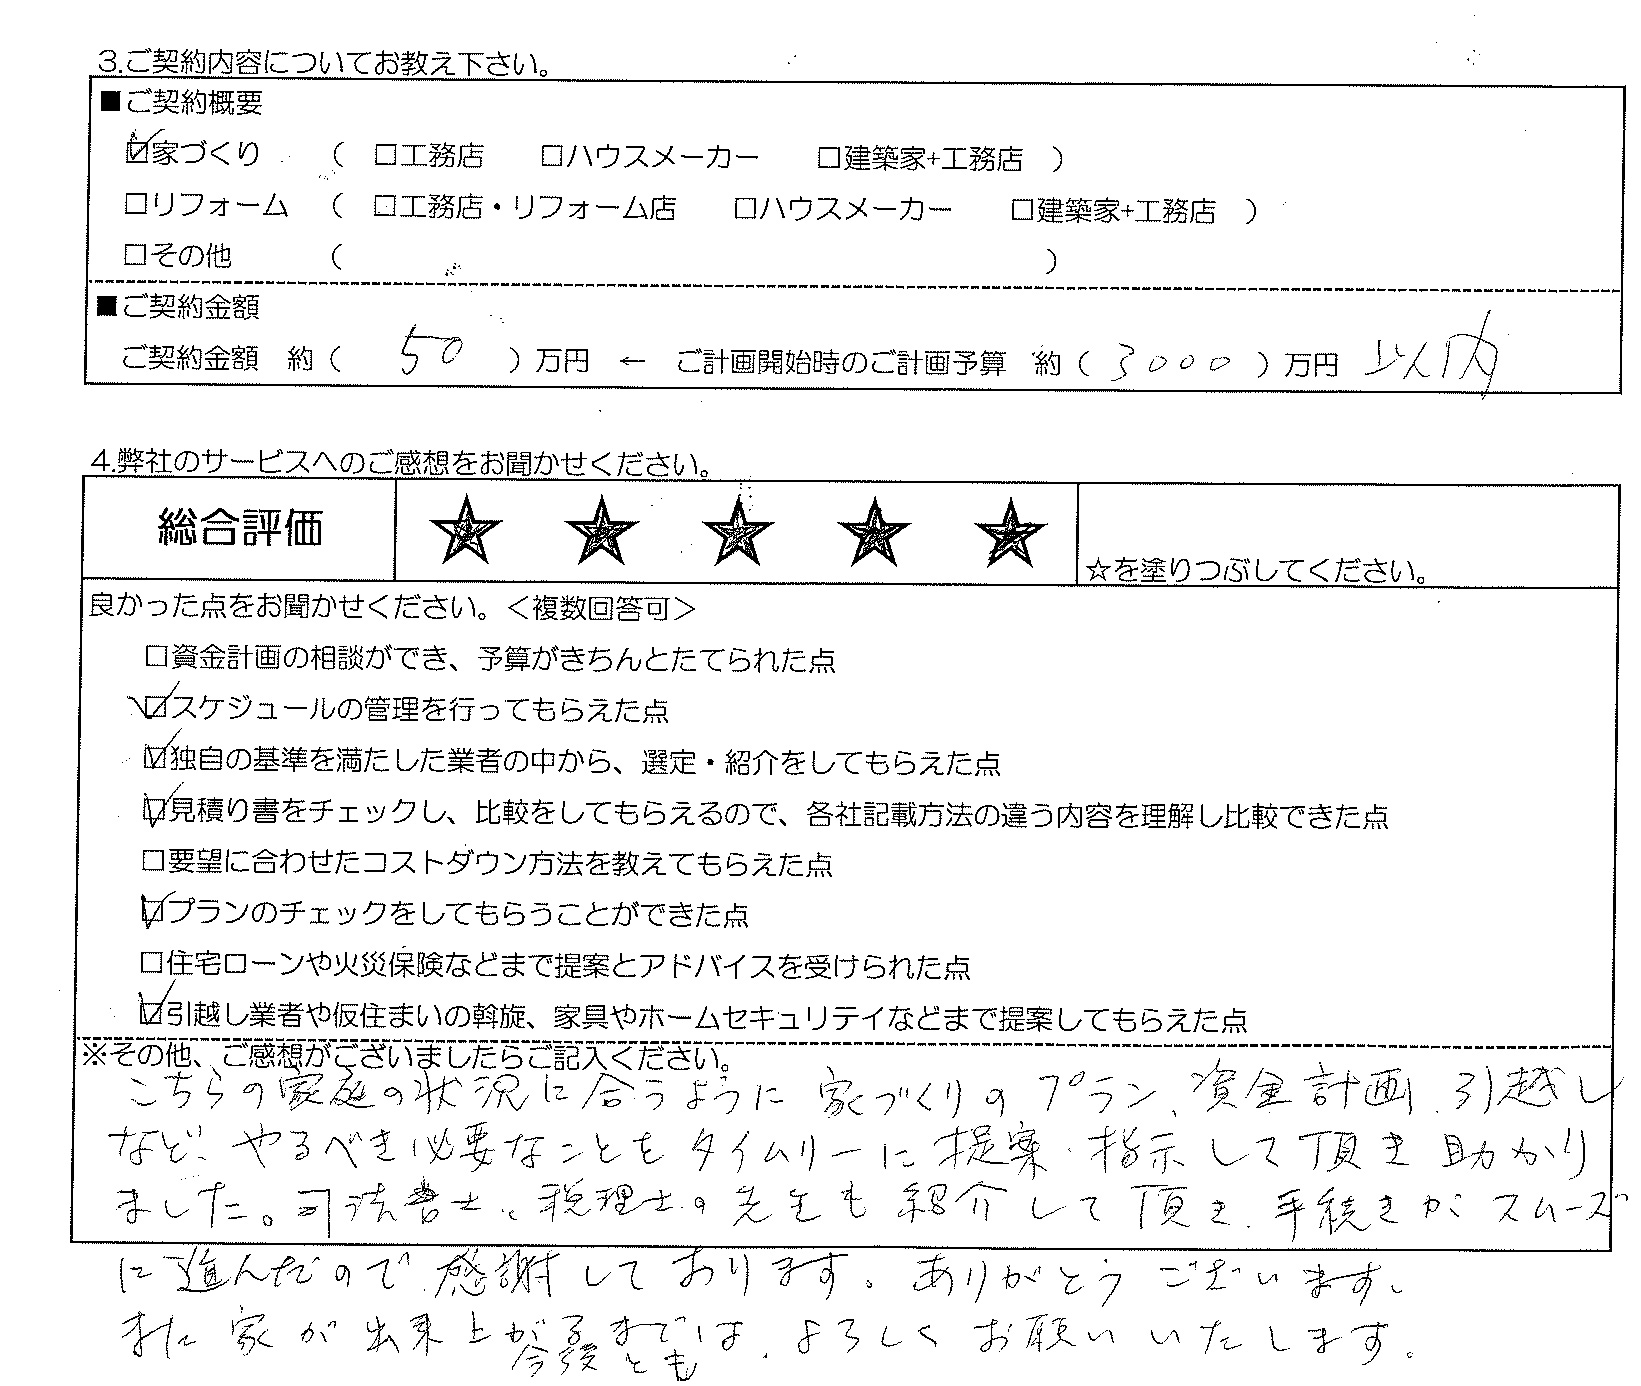 3.ご契約内容についてお教え下さい。
■ご契約概要
☑家づくり （ □工務店 □ハウスメーカー □建築家+工務店 ）
□リフォーム （ □工務店・リフォーム店 □ハウスメーカー □建築家+工務店 ）
□その他 （ ）
■ご契約金額
ご契約金額 約（ 50 ）万円 ← ご計画開始時のご計画予算 約（ 3000 ）万円 以内
4.弊社のサービスへのご感想をお聞かせください。
総合評価 ★ ★ ★ ★ ★ ☆を塗りつぶしてください。
良かった点をお聞かせください。＜複数回答可＞
□資金計画の相談ができ、予算がきちんとたてられた点
☑スケジュールの管理を行ってもらえた点
☑独自の基準を満たした業者の中から、選定・紹介をしてもらえた点
☑見積り書をチェックし、比較をしてもらえるので、各社記載方法の違う内容を理解し比較できた点
□要望に合わせたコストダウン方法を教えてもらえた点
☑プランのチェックをしてもらうことができた点
□住宅ローンや火災保険などまで提案とアドバイスを受けられた点
☑引越し業者や仮住まいの斡旋、家具やホームセキュリテイなどまで提案してもらえた点
※その他、ご感想がございましたらご記入ください。
こちらの家庭の状況に合うように家づくりのプラン、資金計画、引越し
など、やるべき必要なことをタイムリーに提案・指示して頂き助かり
ました。司法書士、税理士の先生も紹介して頂き、手続きがスムーズ
に進んだので感謝しております。ありがとうございます。
また家が出来上がるまでは、よろしくお願いいたします。
今後とも